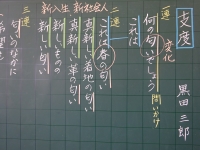 支度
黒田 三郎
変化
一連
何の匂いでしょう
問いかけ
これは
二連
これは春の匂い
真新しい着地の匂い
真新しい革の匂い
新しいものの
新しい匂い
新入生 新社会人
三連
匂いのなかに